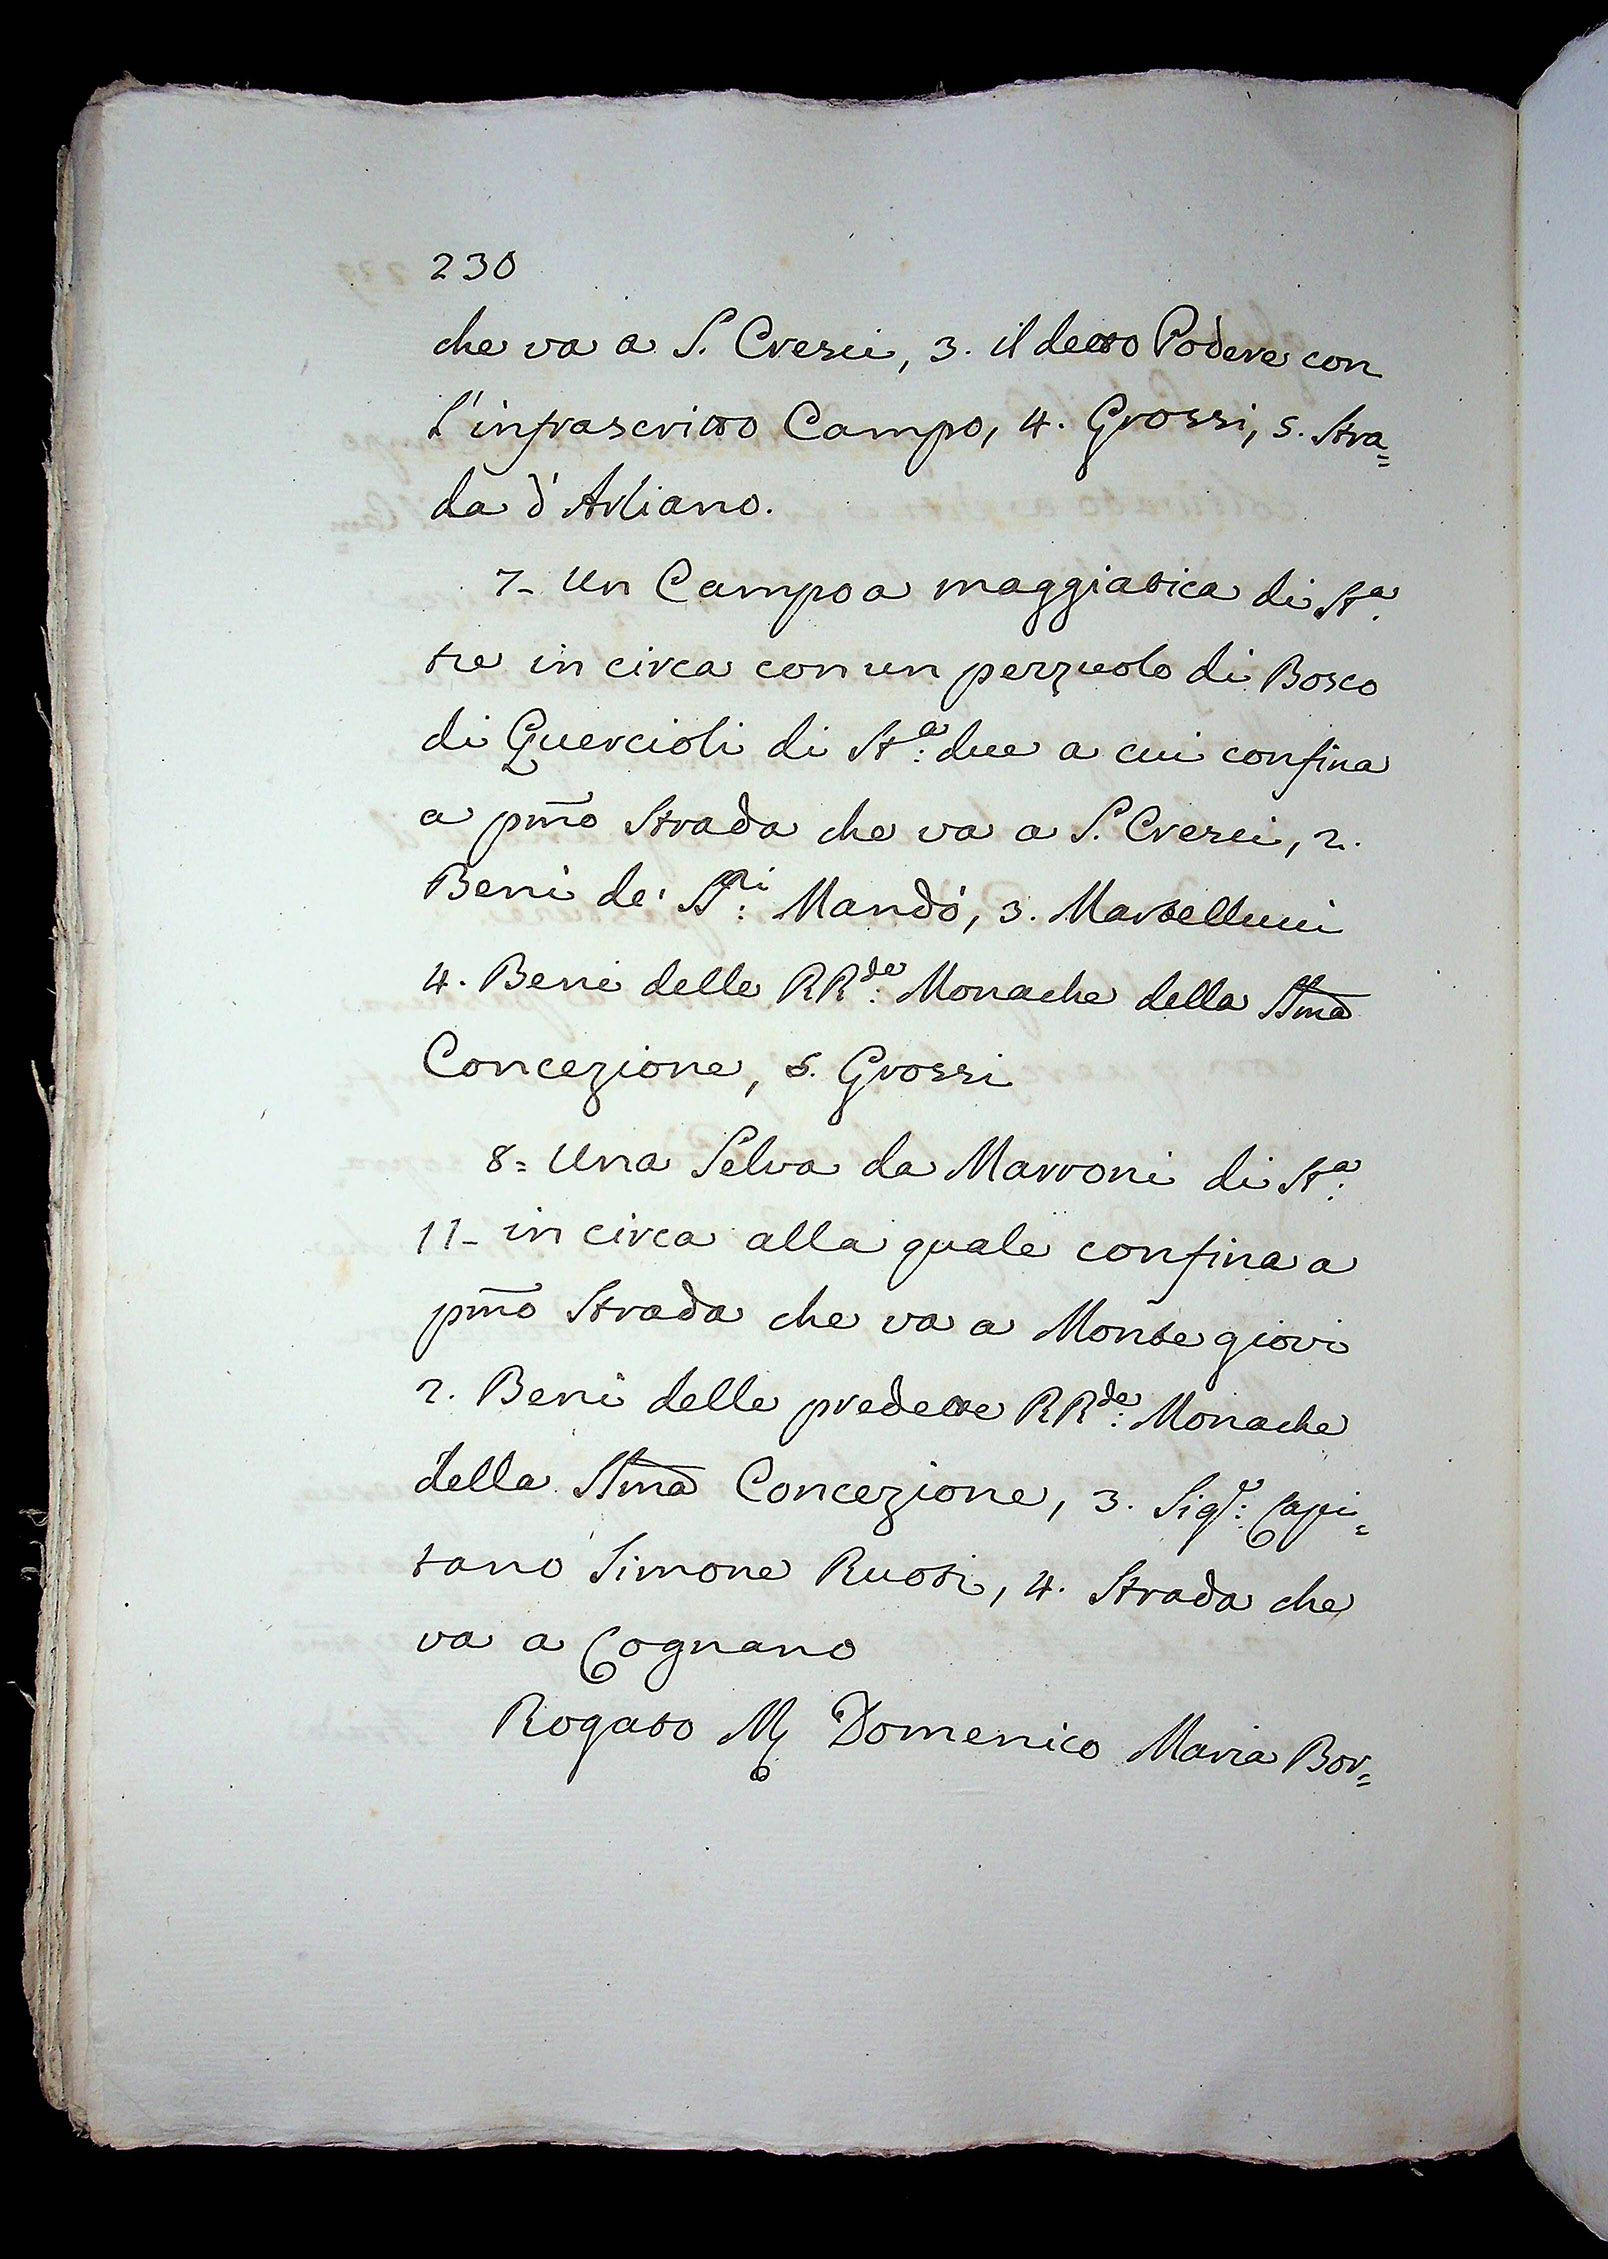 230
che va a S. Cresci, 3. il detto Podere con
l'infrascritto Campo, 4. Grossi, 5. Stra=
da d'Arliano.
7- Un Campo a maggiatica di St.ª
tre in circa con un pezzuolo di Bosco
di Quercioli di St:ª due a cui confina
a pm̃o Strada che va a S. Cresci, 2.
Beni de' SS:ri Mandò, 3. Martellucci
4. Beni delle RR:de Monache della SSm̃a
Concezione, 5. Grossi
8= Una Selva da Marroni di St:ª
11- in circa alla quale confina a
pm̃o Strada che va a Monte giovi
2. Beni delle predette RR:de Monache
della SSm̃a Concezione, 3. Sig:r Capi=
tano Simone Ruoti, 4. Strada che
va a Cognano
Rogato M Domenico Maria Bor=